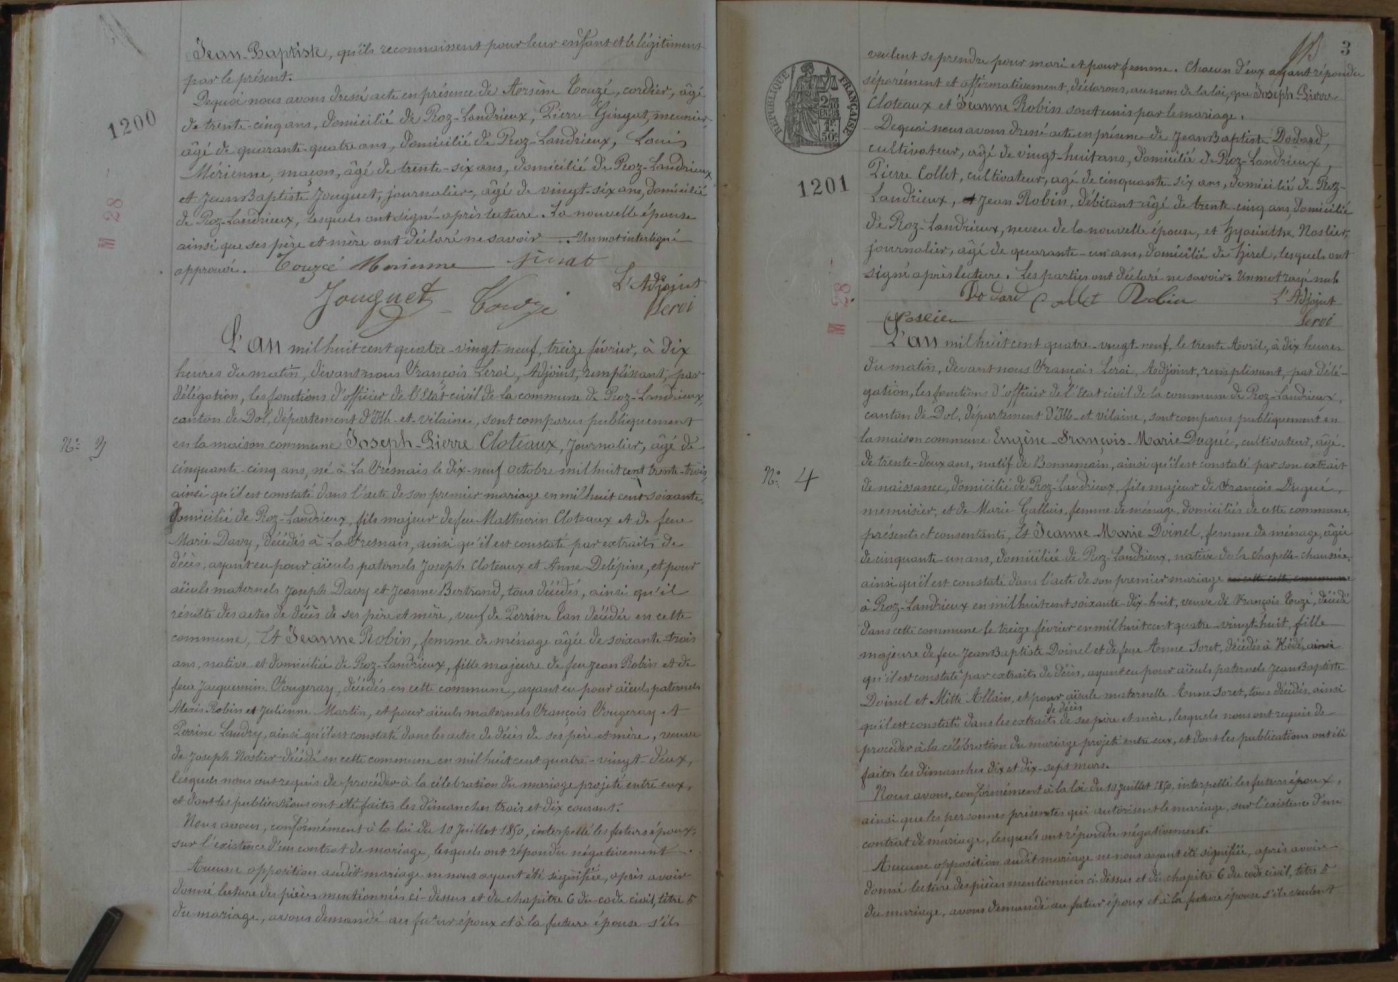 Jean-Baptiste, qu'ils reconnaissent pour leur enfant et le légitiment
par le présent.
De quoi nous avons dressé acte en présence de Arsène Touzé, cordier, âgé
de trente-cinq ans, domicilié de Roz-Landrieux, Pierre Gingut, meunier
âgé de quarante-quatre ans, domicilié de Roz-Landrieux, Louis
Mérienne, maçon, âgé de trente-six ans, domicilié de Roz-Landrieux
et Jean Baptiste Jouguet, journalier, âgé de vingt-six ans, domicilié
de Roz-Landrieux, lesquels ont signé après lecture. La nouvelle épouse
ainsi que ses père et mère ont déclaré ne savoir. Un mot interligné
approuvé. Touzé Merienne
L'Adjoint
Jouguet Touzé Leroi
1200
M 28
L'an mil huit cent quatre-vingt-neuf, treize février, à dix
heures du matin, devant nous François Leroi, Adjoint, remplissant, par
délégation, les fonctions d'officier de l'état civil de la commune de Roz-Landrieux,
canton de Dol, département d'Ille-et-Vilaine, sont comparus publiquement
en la maison commune Joseph-Pierre Cloteaux, journalier, âgé de
cinquante cinq ans, né à La Fresnais le dix-neuf octobre mil huit cent trente-trois,
ainsi qu'il est constaté dans l'acte de son premier mariage en mil huit cent soixante,
domicilié de Roz-Landrieux, fils majeur de feu Mathurin Cloteaux et de feue
Marie Davy, décédés à La Fresnais, ainsi qu'il est constaté par extraits de
décès, ayant eu pour aïeuls paternels Joseph Cloteaux et Anne Delépine, et pour
aïeuls maternels Joseph Davy et Jeanne Bertrand, tous décédés, ainsi qu'il
résulte des actes de décès de ses père et mère, veuf de Perrine décédée en cette
commune, Et Jeanne Robin, femme de ménage âgée de soixante-trois
ans, native et domiciliée de Roz-Landrieux, fille majeure de feu Jean Robin et de
feue Jacquemine Fougeray, décédés en cette commune, ayant eu pour aïeuls paternels
Robin et Julienne Martin, et pour aïeuls maternels François Fougeray et
Perrine Landry, ainsi qu'il est constaté dans les actes de décès de ses père et mère, veuve
de Joseph Noslier décédé en cette commune en mil huit cent quatre-vingt deux,
lesquels nous ont requis de procéder à la célébration du mariage projeté entre eux,
et dont les publications ont été faites les dimanches trois et dix courant.
Nous avons, conformément à la loi du 10 Juillet 1850, interpellé les futurs époux
sur l'existence d'un contrat de mariage, lesquels ont répondu négativement.
Aucune opposition audit mariage ne nous ayant été signifiée, après avoir
donné lecture des pièces mentionnées ci-dessus et du chapitre 6 du code civil, titre 5
du mariage, avons demandé au futur époux et à la future épouse s'ils
No 3
3
RÉPUBLIQUE FRANÇAISE
1201
M 28
veulent se prendre pour mari et pour femme. Chacun d'eux ayant répondu
séparément et affirmativement, déclarons, au nom de la loi, que Joseph-Pierre
Cloteaux et Jeanne Robin sont unis par le mariage.
De quoi nous avons dressé acte en présence de Jean Baptiste Dodard,
cultivateur, âgé de vingt-huit ans, domicilié de Roz-Landrieux,
Pierre Collet, cultivateur, âgé de cinquante six ans, domicilié de Roz-
Landrieux, et Jean Robin, débitant âgé de trente cinq ans domicilié
de Roz-Landrieux, neveu de la nouvelle épouse, et Hyacinthe Noslier,
journalier, âgé de quarante-un ans, domicilié de Hirel, lesquels ont
signé après lecture. Les parties ont déclaré ne savoir. Un mot rayé nul.
Dodard Collet Robin L'Adjoint
Leroi
L'an mil huit cent quatre-vingt-neuf, le trente Avril, à dix heures
du matin, devant nous François Leroi, Adjoint, remplissant, par délé-
gation, les fonctions d'officier de l'état civil de la commune de Roz-Landrieux,
canton de Dol, département d'Ille-et-Vilaine, sont comparus publiquement en
la maison commune Eugène-François-Marie Dugué, cultivateur, âgé
de trente-deux ans, natif de Bonnemain, ainsi qu'il est constaté par son extrait
de naissance, domicilié de Roz-Landrieux, fils majeur de François Dugué,
menuisier, et de Marie Gallais, femme de ménage, domiciliés de cette commune,
présents et consentants, Et Jeanne-Marie Doinel, femme de ménage, âgée
de cinquante-un ans, domiciliée de Roz-Landrieux, native de la Chapelle-Chaussée,
ainsi qu'il est constaté dans l'acte de son premier mariage
à Roz-Landrieux en mil huit cent soixante-dix-huit, veuve de François Touzé, décédé
dans cette commune le treize février en mil huit cent quatre-vingt-huit, fille
majeure de feu Jean Baptiste Doinel et de feue Anne Soret, décédés à Hédé, ainsi
qu'il est constaté par extraits de décès, ayant eu pour aïeuls paternels Jean Baptiste
Doinel et Allain, et pour aïeule maternelle Anne Soret, tous décédés, ainsi
de décès
qu'il est constaté dans les extraits de ses père et mère, lesquels nous ont requis de
procéder à la célébration du mariage projeté entre eux, et dont les publications ont été
faites les dimanches dix et dix-sept mars.
Nous avons, conformément à la loi du 10 Juillet 1850, interpellé les futurs époux,
ainsi que les personnes présentes qui autorisent le mariage, sur l'existence d'un
contrat de mariage, lesquels ont répondu négativement.
Aucune opposition audit mariage ne nous ayant été signifiée, après avoir
donné lecture des pièces mentionnées ci-dessus et du chapitre 6 du code civil, titre 5
du mariage, avons demandé au futur époux et à la future épouse s'ils veulent
No 4